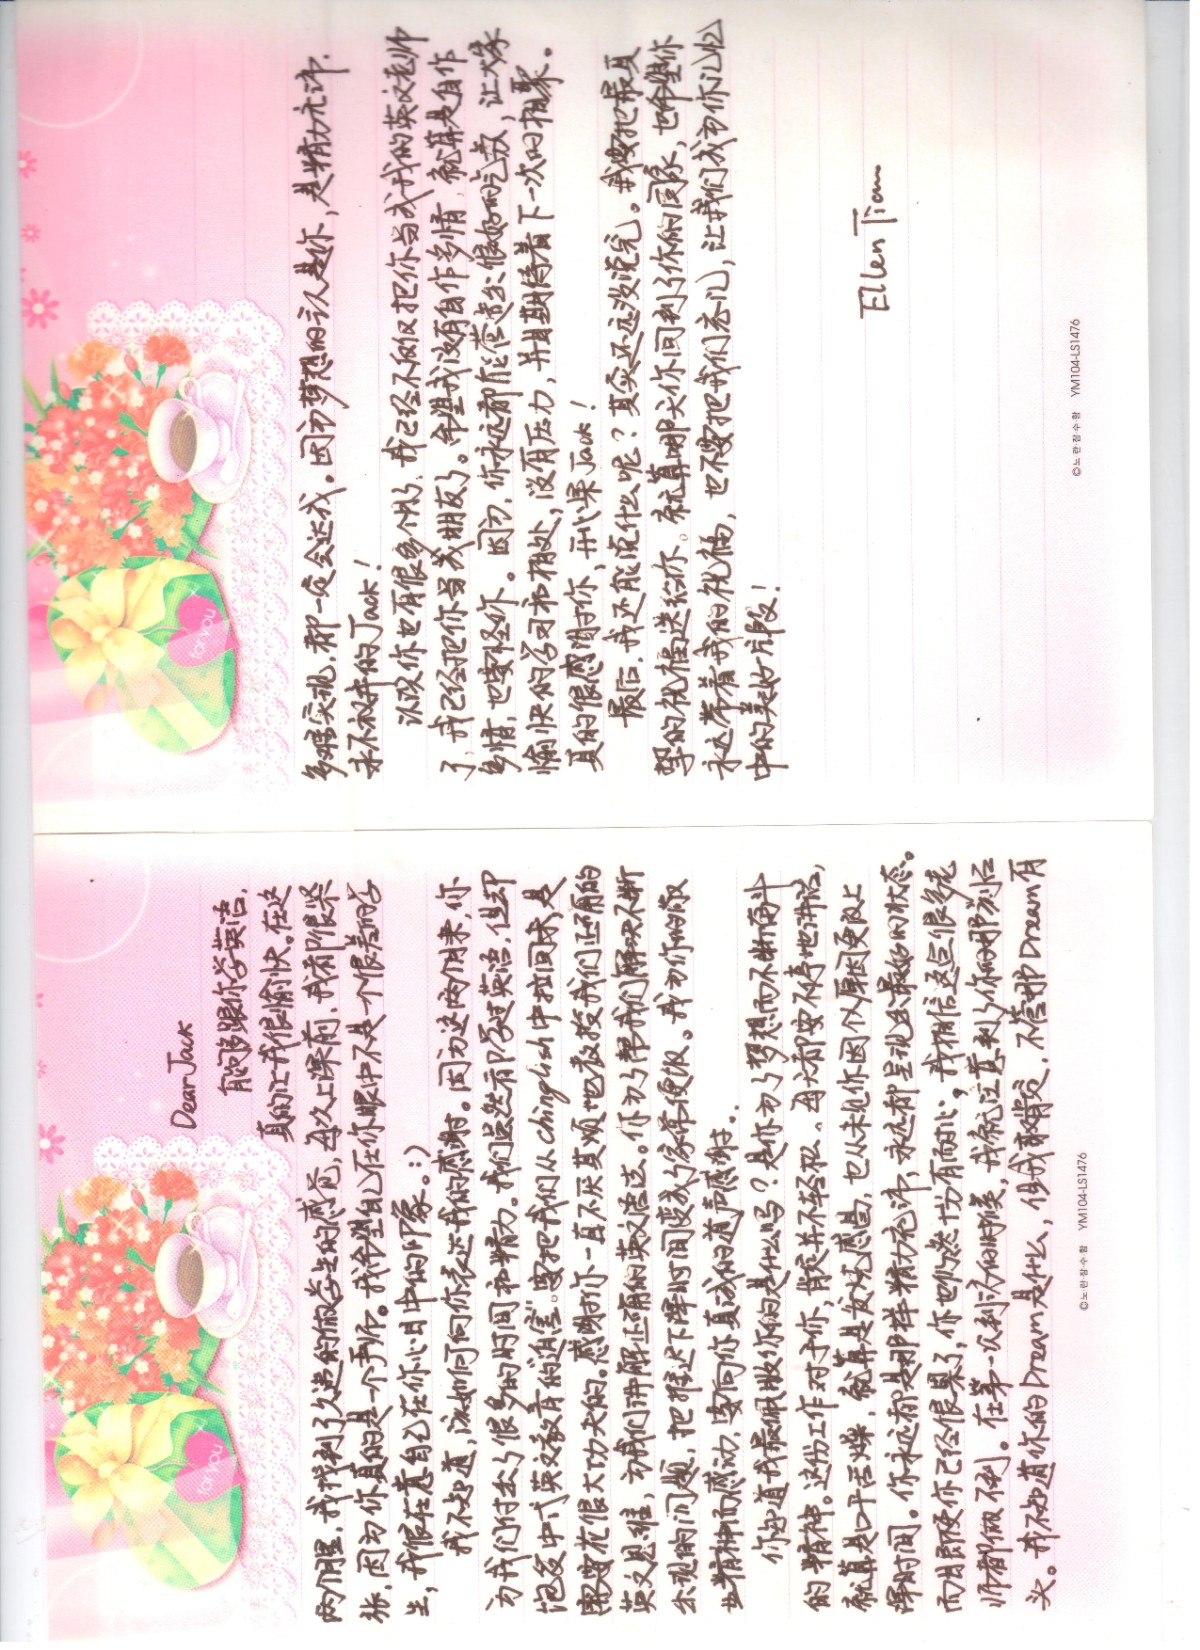 Dear Jack
能够跟你学英语,
真的让我很愉快。在这
两个月里,我找到了久违的做学生的感觉,每次上课前,我都很紧
张,因为你真的是一个严师。我希望自己在你眼中不是一个很差的学
生,我很在意自己在你心目中的印象。:)
我不知道,该如何向你表达我的感谢。因为这两个月来,你
为我们付出了很多的时间和精力。我们虽然有即学过英语,但却
饱受中式英文教育的迫害。要把我们从Chinglish中拉回来,是
需要花很大功夫的。感谢你一直不厌其烦地教授我们正确的
英文思维,为我们讲解正确的英文语法。你为了帮我们解决不断
出现的问题,把推迟下课时间变成了家常便饭。我为你的敬
业精神而感动,要向你真诚的道声感谢..
你知道我最佩服你的是什么吗?是你为了梦想而不断奋斗
的精神。这份工作对于你,肯定并不轻松。每天都要不停地讲话,
就算是口干舌燥,就算是发烧感冒,也从未见你因似原因更改上
课时间。你永远都是那样精力充沛,永远都呈现出最好的状态。
而且即使你已经很累了,你也仍然十分有耐心,我相信这点很多老
师都做不到。在第一次到访的时候,我就注意到了你的那刻石
头。我不知道你的Dream是什么,但我敢肯定,不管那Dream有
for you
©노란잠수함 YM104-LS1476
多难实现,都一定会达成。因为有梦想的认是你,是精力充沛,
永不放弃的Jack!
认识你也有很多个月了,我已经不仅仅把你当成我的英文老师
了,我已经把你当成朋友了。希望我没有自作多情,就算是自作
多情,也要怪你。因为,你永远都能营造出很好的气氛,让大家
愉快的学习和相处,没有压力,并且期待着下一次的相聚。
真的很感谢你,开心果Jack!
最后,我还能说什么呢?其实还没说完。我要把最真
挚的祝福送给你。就算哪天你回到了你的国家,也希望你
永远带着我的祝福,也不要把我们忘记,让我们成为你记忆
中的美好片段!
Ellen Tian
for you
©노란잠수함 YM104-LS1476